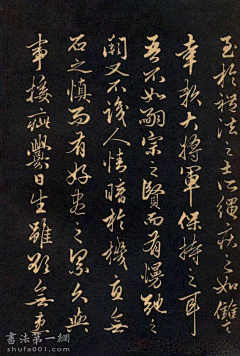 至於禮法之士所繩疾之如讎
幸賴大將軍保持之耳
吾不如嗣宗之賢而有慢弛之
闕又不識人情暗於機宜無
石之慎而有好盡之累久與
事接疵釁日生雖欲無患
書法第一網
shufa001.com